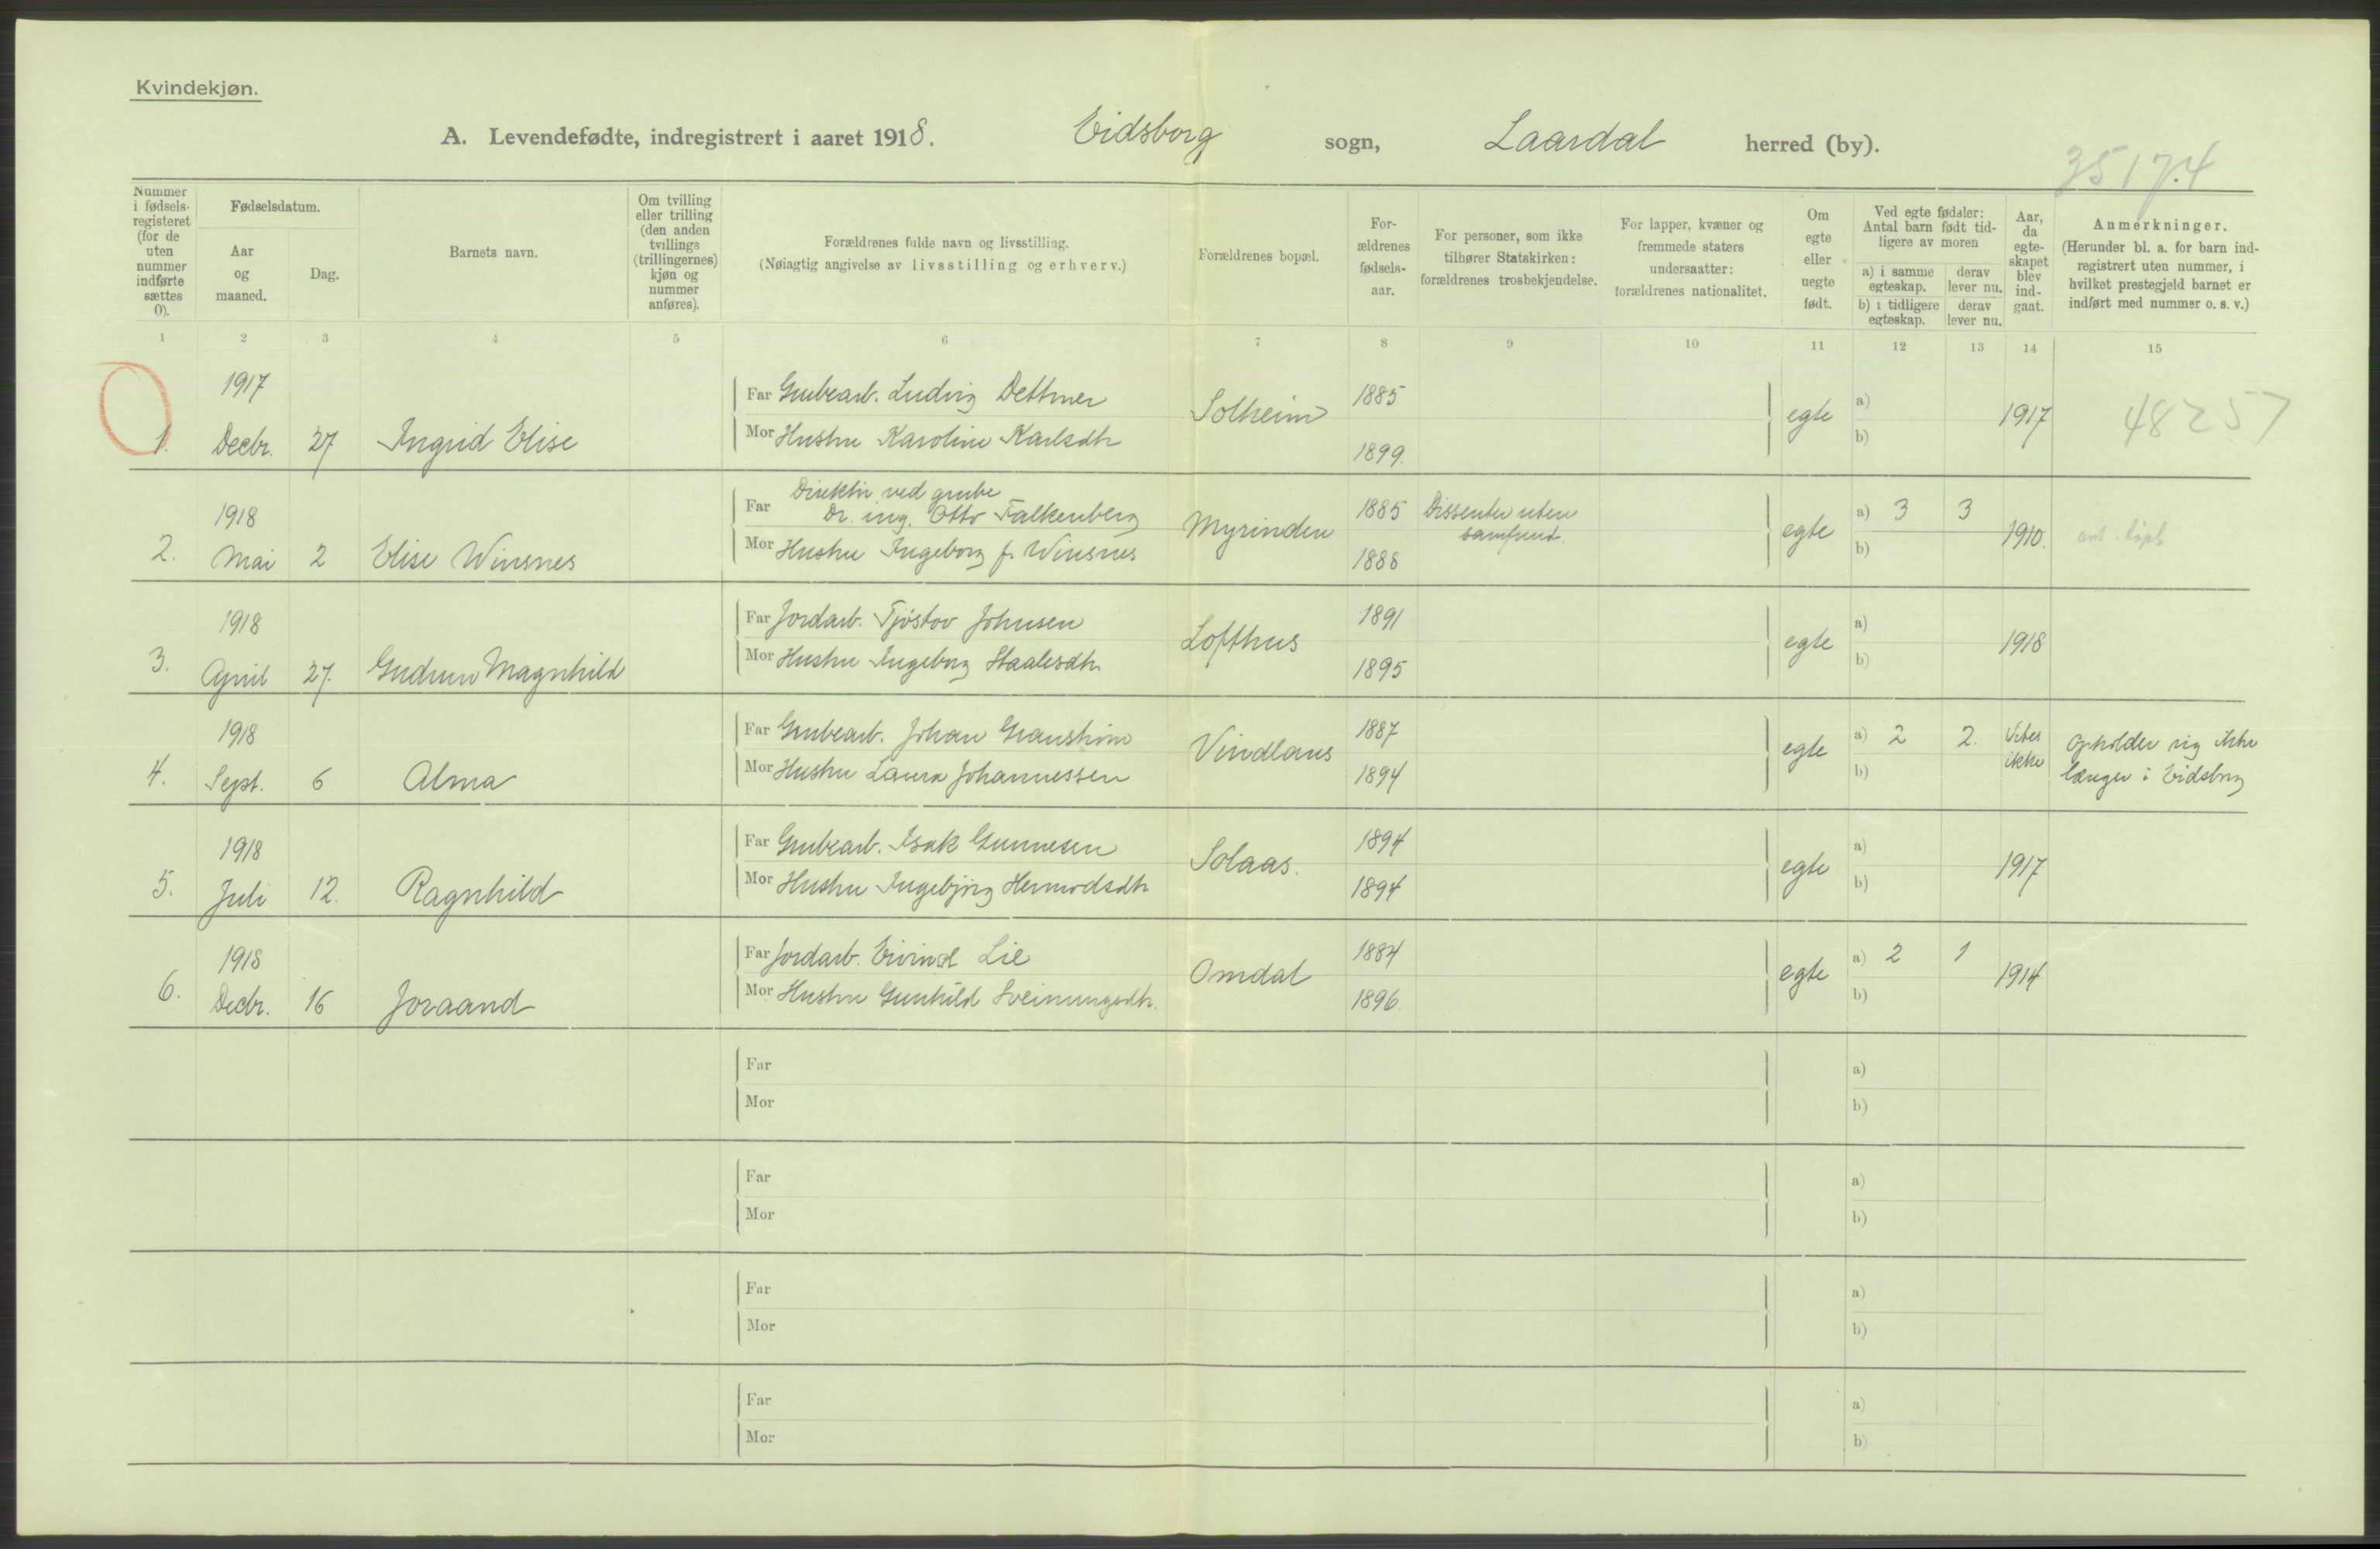 Kvindekjøn.
A. Levendefødte, indregistrert i aaret 1918. Eidsborg sogn, Laardal herred (by).
35 17.4
Nummer i fødsels-registeret (for de uten nummer indførte sættes 0).
Fødselsdatum.
Aar og maaned.
Dag.
Barnets navn.
Om tvilling eller trilling (den anden tvillings (trillingernes) kjøn og nummer anføres).
Forældrenes fulde navn og livsstilling.
(Nøiagtig angivelse av livsstilling og erhverv.)
Forældrenes bopæl.
For-ældrenes fødsels-aar.
For personer, som ikke tilhører Statskirken: forældrenes trosbekjendelse.
For lapper, kvæner og fremmede staters undersaatter: forældrenes nationalitet.
Om egte eller uegte født.
Ved egte fødsler: Antal barn født tid-ligere av moren
a) i samme egteskap.
derav lever nu.
b) i tidligere egteskap.
derav lever nu.
Aar, da egte-skapet blev ind-gaat.
Anmerkninger.
(Herunder bl. a. for barn ind-registrert uten nummer, i hvilket prestegjeld barnet er indført med nummer o. s. v.)
1 2 3 4 5 6 7 8 9 10 11 12 13 14 15
1917
Far Grubearb. Ludvig Dettmer 1885
1. Decbr. 27 Ingrid Elise Solheim egte a) b) 1917 48257
Mor Hustru Karoline Karlsdtr 1899.
1918
Direktør ved grube
Far Dr. ing. Otto Falkenberg 1885 Dissenter uten samfund.
2. Mai 2 Elise Winsnes Myrinden egte a) 3 3 b) 1910.
Mor Hustru Ingeborg f. Winsnes 1888
1918
Far Jordarb. Tjøstov Johnsen 1891
3. April 27. Gudrun Magnhild Lofthus egte a) b) 1918
Mor Hustru Ingeborg Staalesdtr. 1895
1918
Far Grubearb. Johan Granstrøm 1887
4. Sept. 6 Alma Vindlaus egte a) 2 2. b) Vites ikke Opholder sig ikke
længer i Eidsborg
Mor Hustru Laura Johannessen 1894
1918
Far Grubearb. Isak Gunnesen 1894
5. Juli 12. Ragnhild Solaas. egte a) b) 1917
Mor Hustru Ingebjørg Hermodsdtr. 1894
1918
Far Jordarb. Eivind Lie 1884
6. Decbr. 16 Joraand Omdal egte a) 2 1 b) 1914
Mor Hustru Gunhild Sveinungsdtr. 1896.
Far a)
Mor b)
Far a)
Mor b)
Far a)
Mor b)
Far a)
Mor b)